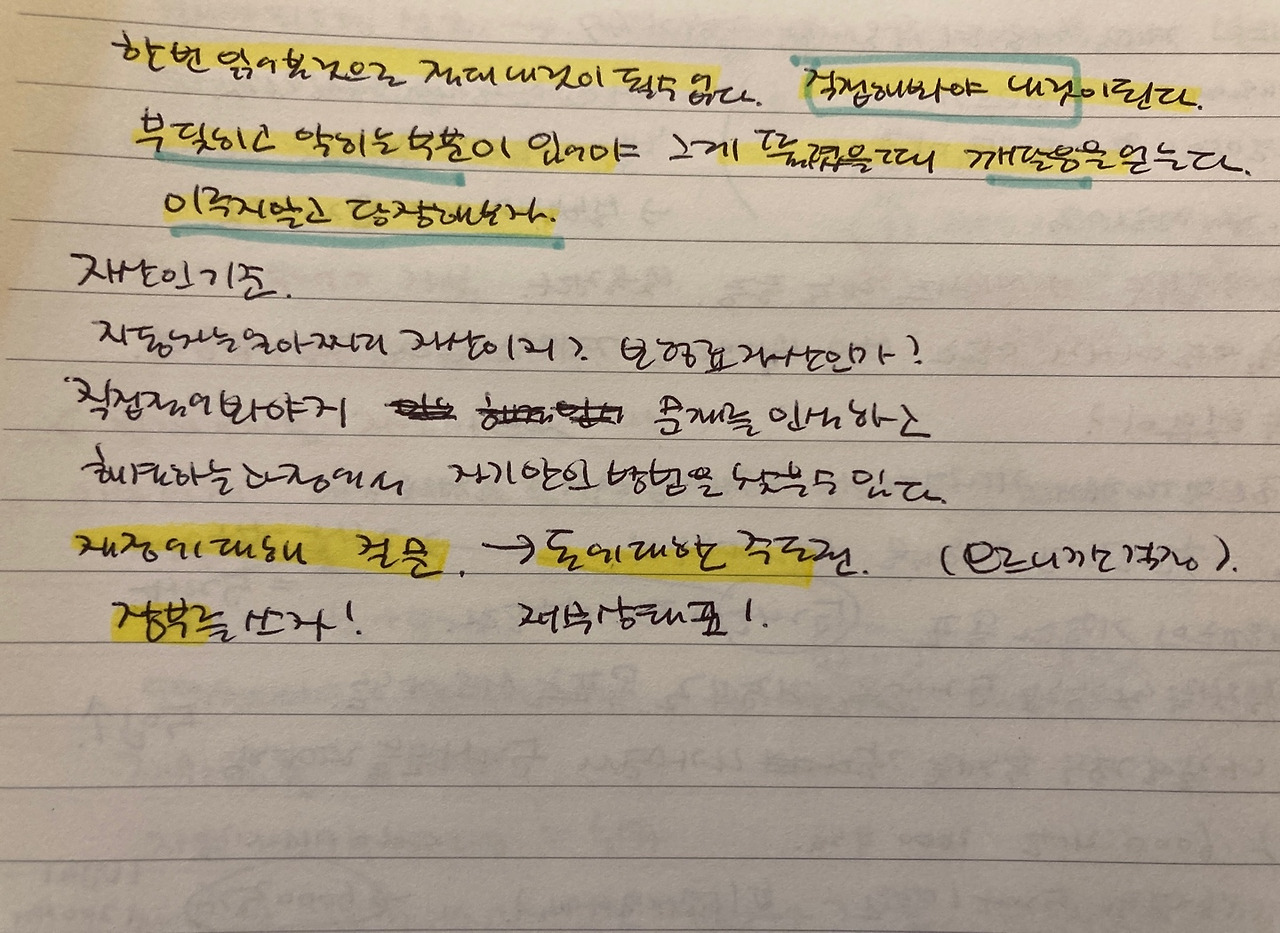 한번 읽어본것으로 절대 내것이 될수 없다. 직접해봐야 내것이된다.
부딪히고 막히는 부분이 있어야 그게 뚫렸을때 깨달음을 얻는다.
미루지말고 당장해보자.
자산의기준.
자동차는얼마짜리 자산이지? 보험료자산인가?
직접적어봐야지 문제를 인식하고
해결하는과정에서 자기만의 방법을 찾을수 있다.
재정에대해 질문. → 돈에대한 주도권. (모르니깐걱정).
장부를 쓰자! 재무상태표!.